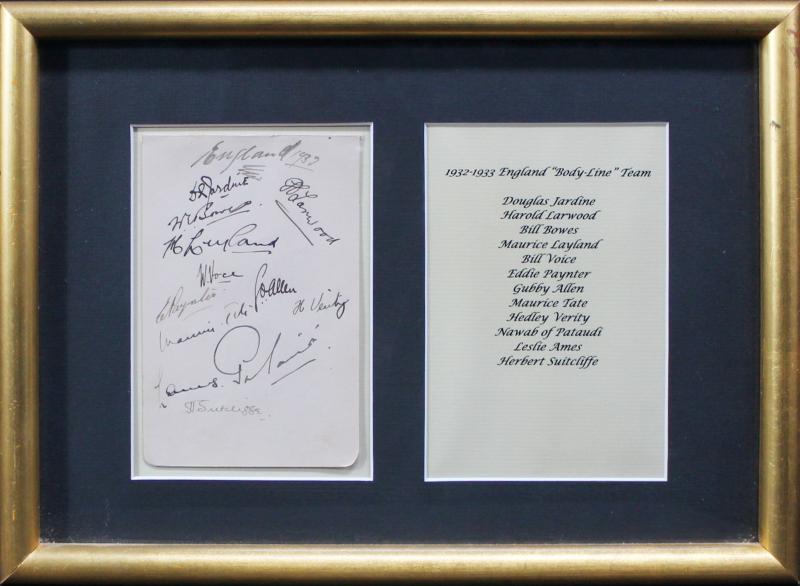 England 1932
D R Jardine
H Larwood
W E Bowes
M Leyland
W Voce
G O Allen
E Paynter
H Verity
Maurice Tate
L Ames
Pataudi
H Sutcliffe
1932-1933 England "Body-Line" Team
Douglas Jardine
Harold Larwood
Bill Bowes
Maurice Layland
Bill Voice
Eddie Paynter
Gubby Allen
Maurice Tate
Hedley Verity
Nawab of Pataudi
Leslie Ames
Herbert Suitcliffe